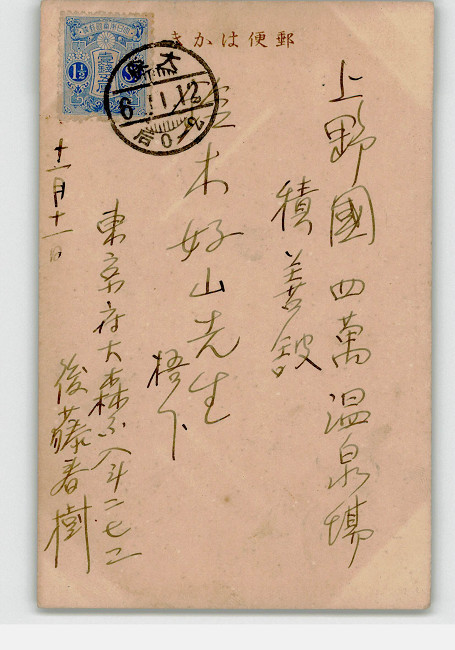 郵便はかき
上野國四萬温泉場
積善館
木好山先生
梧下
東京府大森不入斗二七二
後藤春樹
十一月十一日
1½
大森
6.11.12
后0